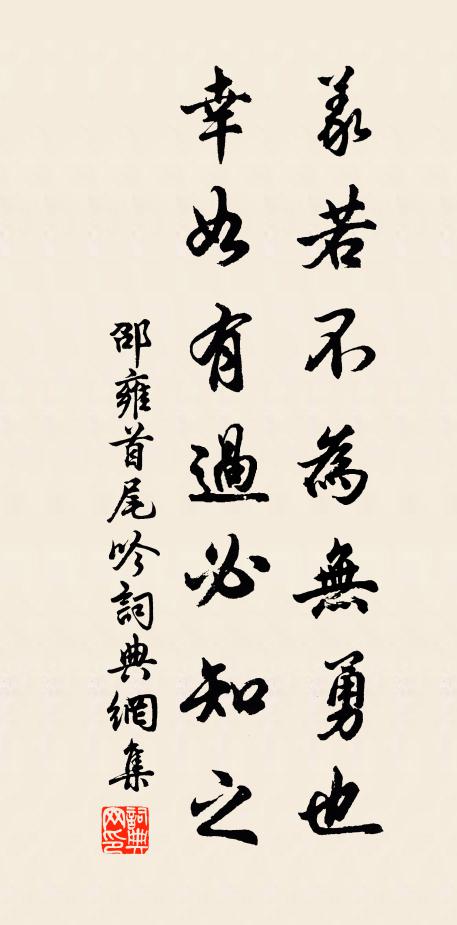 義若不為無勇也
幸如有過必知之
邵雍首尾吟詞典網集
詞典网印